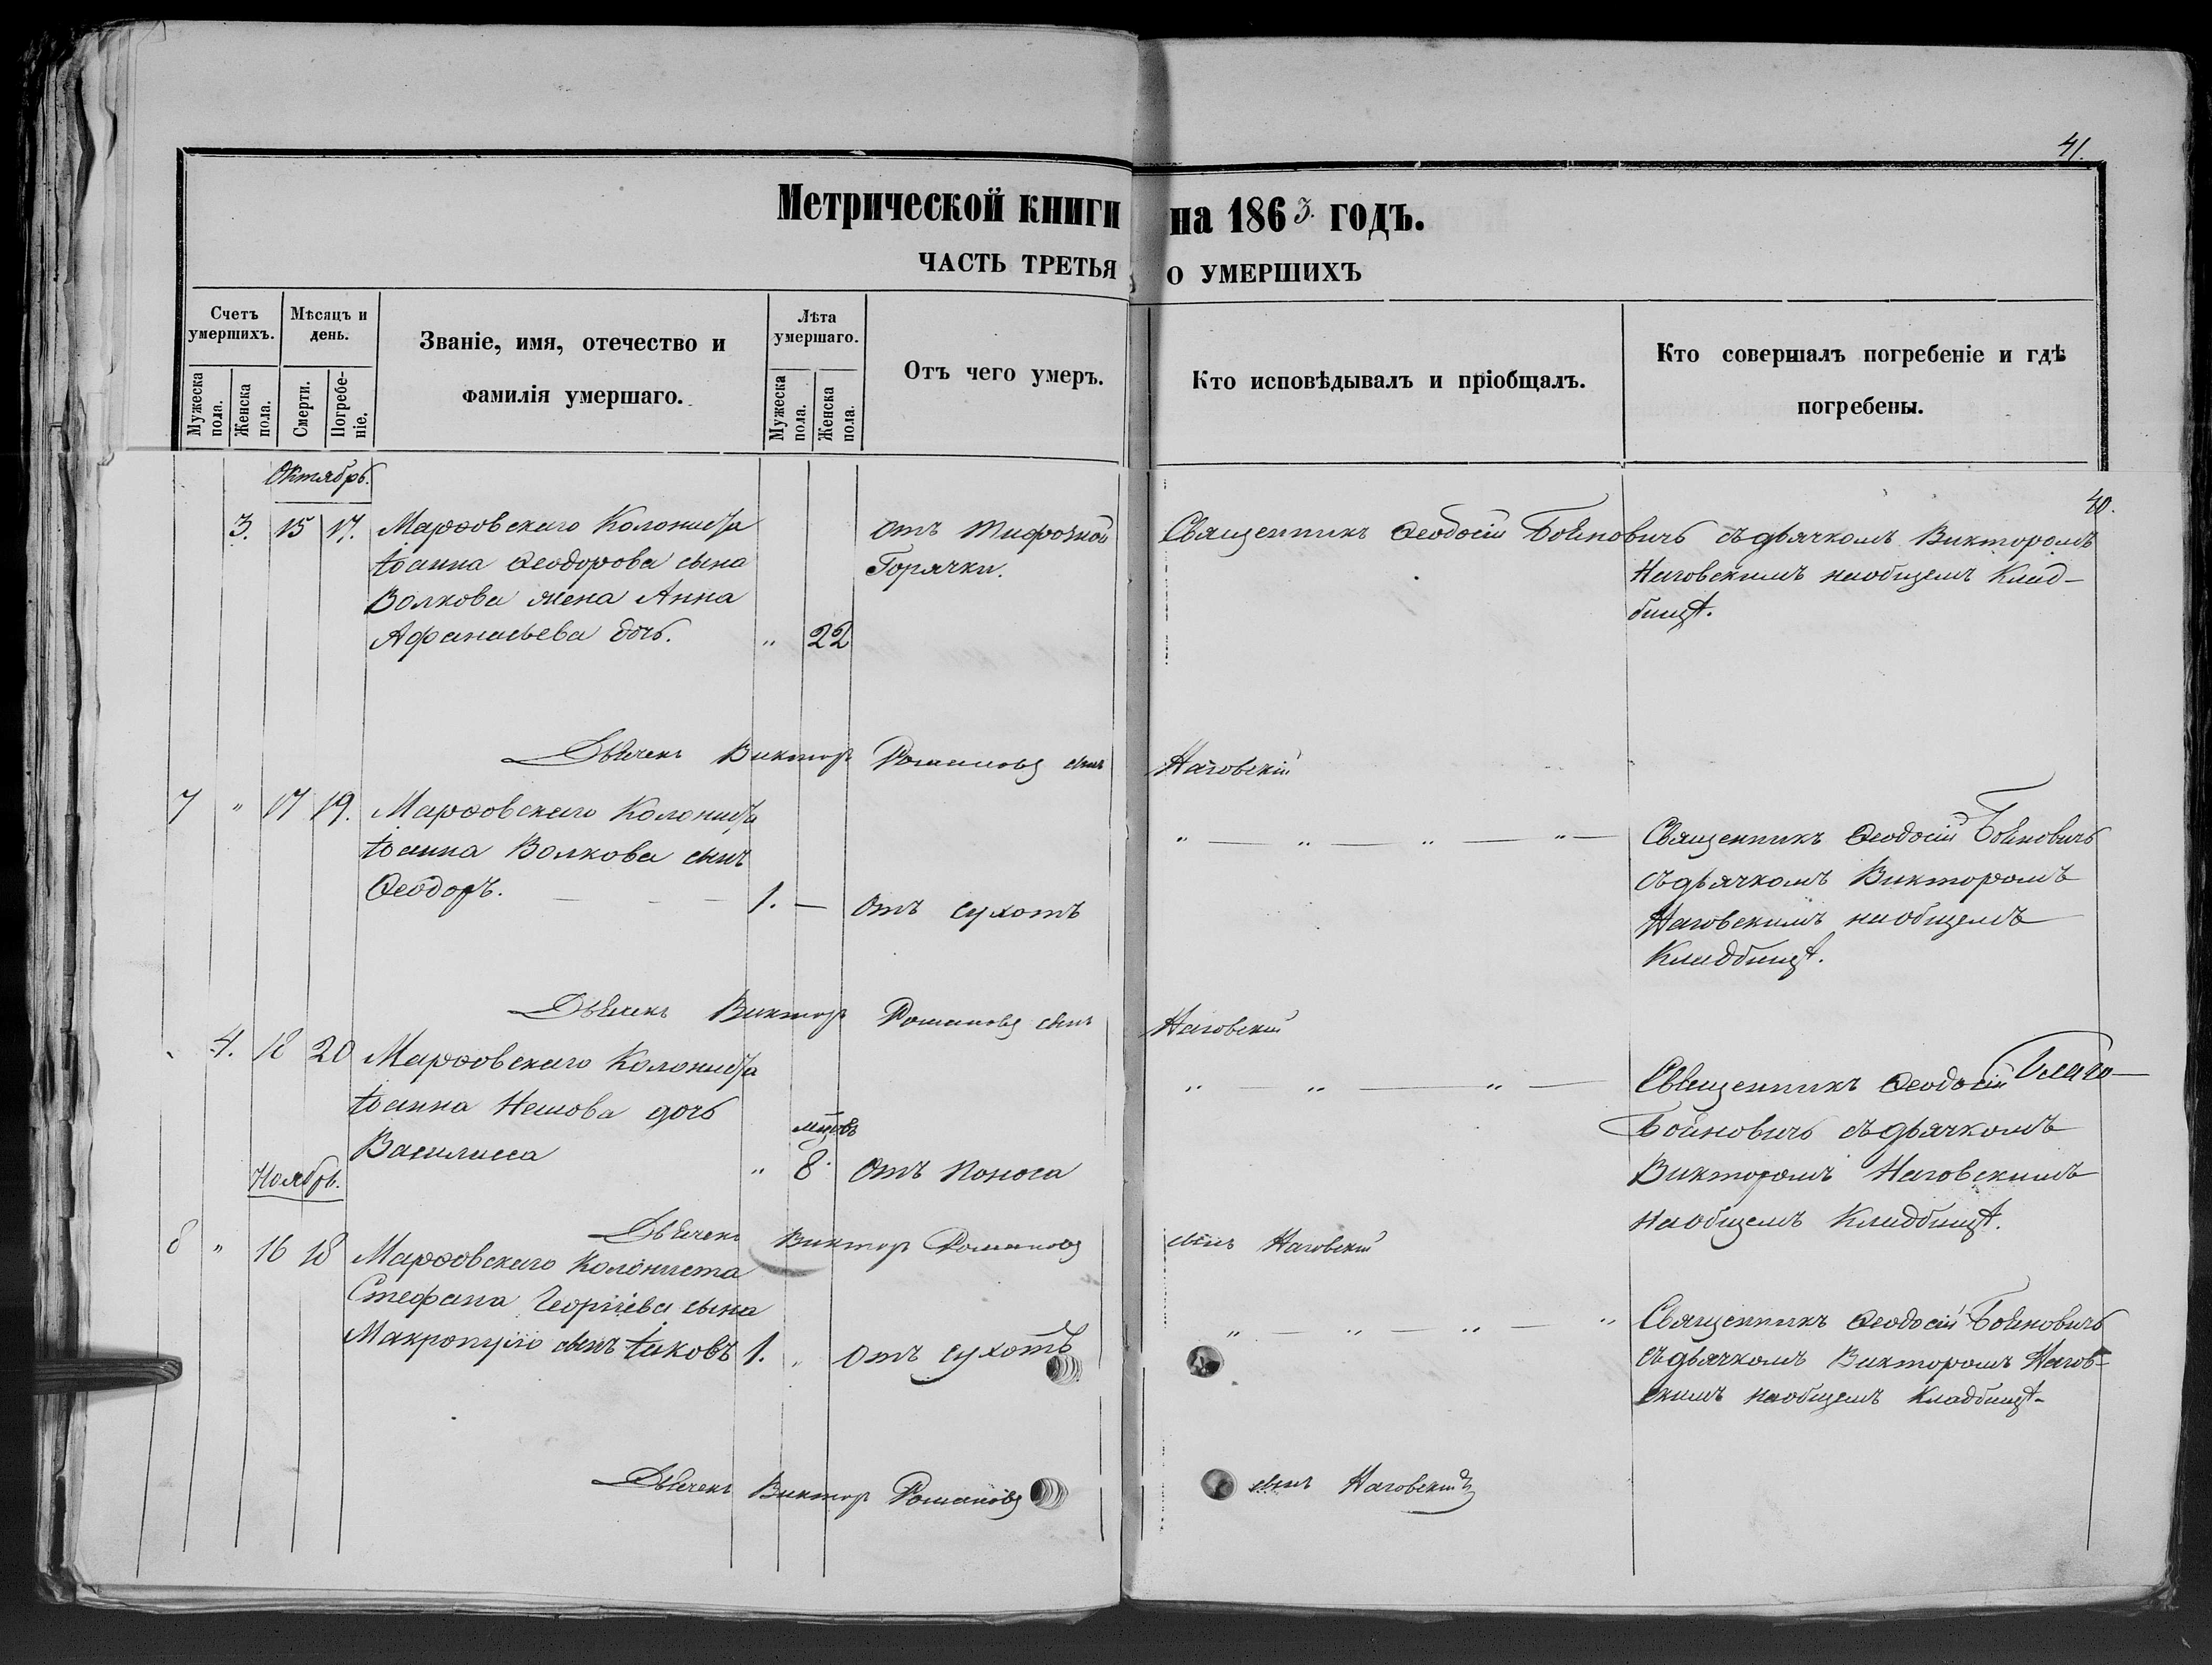 41.
Метрической книги на 1863. годъ.
ЧАСТЬ ТРЕТЬЯ О УМЕРШИХЪ
Счетъ умершихъ.
Мужеска пола.
Женска пола.
Мѣсяцъ и день.
Смерти.
Погребе-ніе.
Званіе, имя, отечество и
фамилія умершаго.
Лѣта умершаго.
Мужеска пола.
Женска пола.
Отъ чего умеръ.
Кто исповѣдывалъ и пріобщалъ.
Кто совершалъ погребеніе и гдѣ
погребены.
Октябрь.
40.
3. 15 17. Марѳовскаго Колониста
Іоанна Ѳеодорова сына
Волкова жена Анна
Афанасьева дочь. " 22
отъ тифозной
Горячки.
Священникъ Ѳеодосій Бойновичъ съ дьячкомъ Викторомъ
Наговскимъ на общемъ Клад-
бищѣ.
Дьячекъ Викторъ Романовъ сынъ Наговскій
7 " 17 19. Марѳовскаго Колониста
Іоанна Волкова сынъ
Ѳеодоръ. — — — 1. — отъ сухотъ
" — " — " — " —
Священникъ Ѳеодосій Бойновичъ
съ дьячкомъ Викторомъ
Наговскимъ на общемъ
Кладбищѣ.
Дьячекъ Викторъ Романовъ сынъ Наговскій
4. 18 20 Марѳовскаго Колониста
Іоанна Нешова дочь
Василисса " мцовъ 8. отъ поноса
" " — " —
Священникъ Ѳеодосій Благо-
Бойновичъ съ дьячкомъ
Викторомъ Наговскимъ
на общемъ Кладбищѣ.
Ноябрь.
Дьячекъ Викторъ Романовъ сынъ Наговскій
8 " 16 18 Марѳовскаго Колониста
Стефана Георгіева сына
Макропуло сынъ Іаковъ 1. " отъ сухотъ
" — " — " — "
Священникъ Ѳеодосій Бойновичъ
съ дьячкомъ Викторомъ Нагов-
скимъ на общемъ Кладбищѣ-
Дьячекъ Викторъ Романовъ сынъ Наговскій